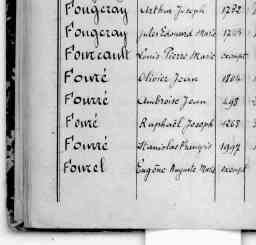 Fougeray Arthur Joseph 1272
Fougeray Jules Edouard Marie
Foureault Louis Pierre Marie exempt
Fouré Olivier Jean 1804
Fourré Ambroise Jean 498
Fouré Raphaël Joseph 1268
Fourré Stanislas François 1992
Fourel Eugène Auguste Marie exempt